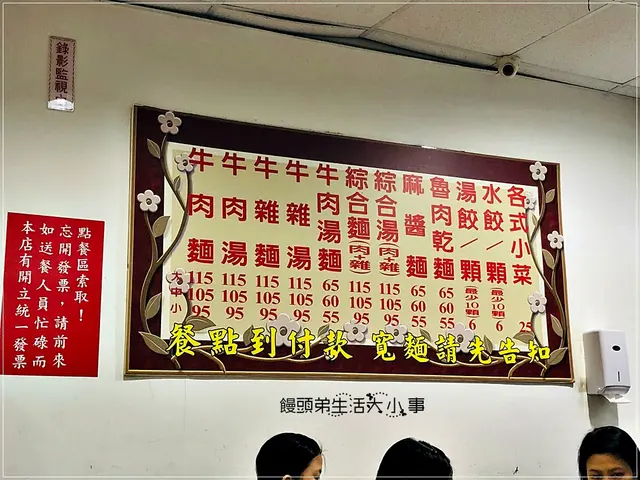 錄影監視中
牛肉麵 大115 中105 小95
牛肉湯 115 105 95
牛雜麵 115 105 95
牛雜湯 115 105 95
牛肉湯麵 65 60 55
綜合麵(肉+雜) 115 105 95
綜合湯(肉+雜) 115 105 95
麻醬麵 65 60 55
魯肉乾麵 65 60 55
湯餃/顆 最少10顆 6
水餃/顆 最少10顆 6
各式小菜 25
餐點到付款 寬麵請先告知
本店有開立統一發票
如送餐人員忙碌而
忘開發票,請前來
點餐區索取!
饅頭弟生活大小事